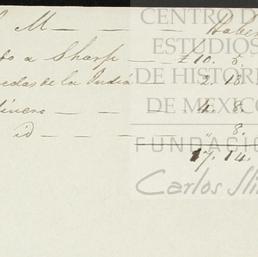 M — — — Haber
a Sharp — £10. 8.
de la India 2. 18.
dinero — — 4. 8.
id — — — " 8.
17. 14.
CENTRO D
ESTUDIOS
DE HISTOR
DE MEXIC
FUNDACIO
Carlos Sli